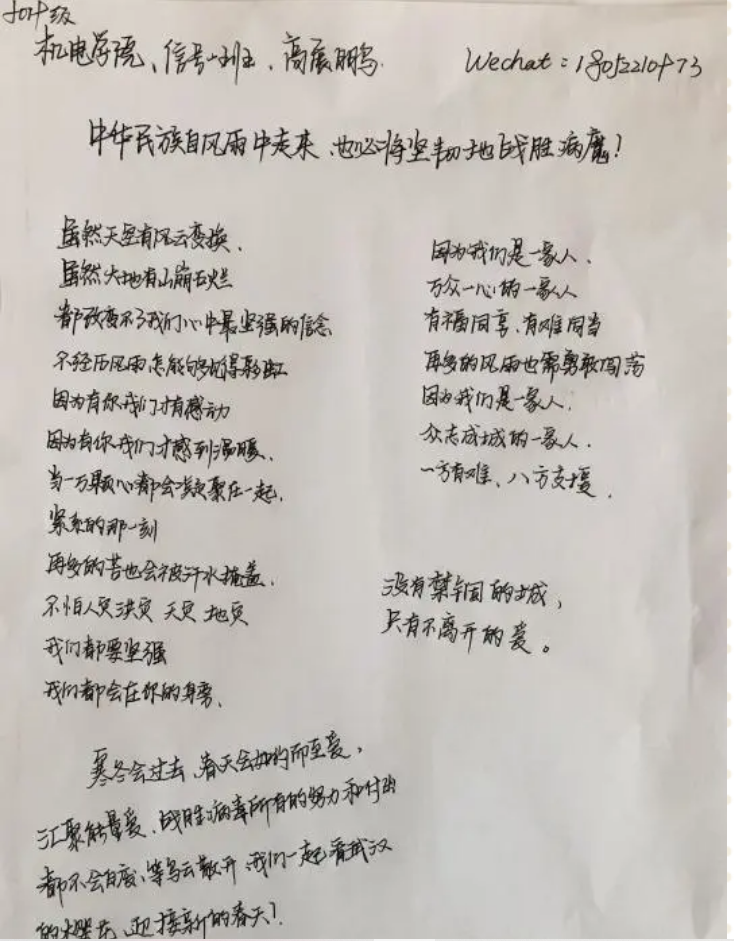 机电学院、信号一班、高展鹏.
Wechat：
中华民族自风雨中走来、也必将坚韧地战胜病魔！
虽然天空有风云变换、
虽然大地有山崩石烂
都改变不了我们心中最坚强的信念
不经历风雨怎能够见得彩虹
因为有你我们才有感动
因为有你我们才感到温暖、
当一万颗心都会凝聚在一起，
紧系的那一刻
再多的苦也会被汗水掩盖、
不怕人灾洪灾 天灾 地灾
我们都要坚强
我们都会在你的身旁、
因为我们是一家人、
万众一心的一家人
有福同享、有难同当
再多的风雨也需勇敢闯荡
因为我们是一家人.
众志成城的一家人.
一方有难、八方支援.
没有禁锢的城，
只有不离开的爱。
寒冬会过去、春天会如约而至爱，
汇聚能量爱、战胜病毒所有的努力和付出
都不会白废、等乌云散开、我们一起看武汉
的樱花、迎接新的春天！